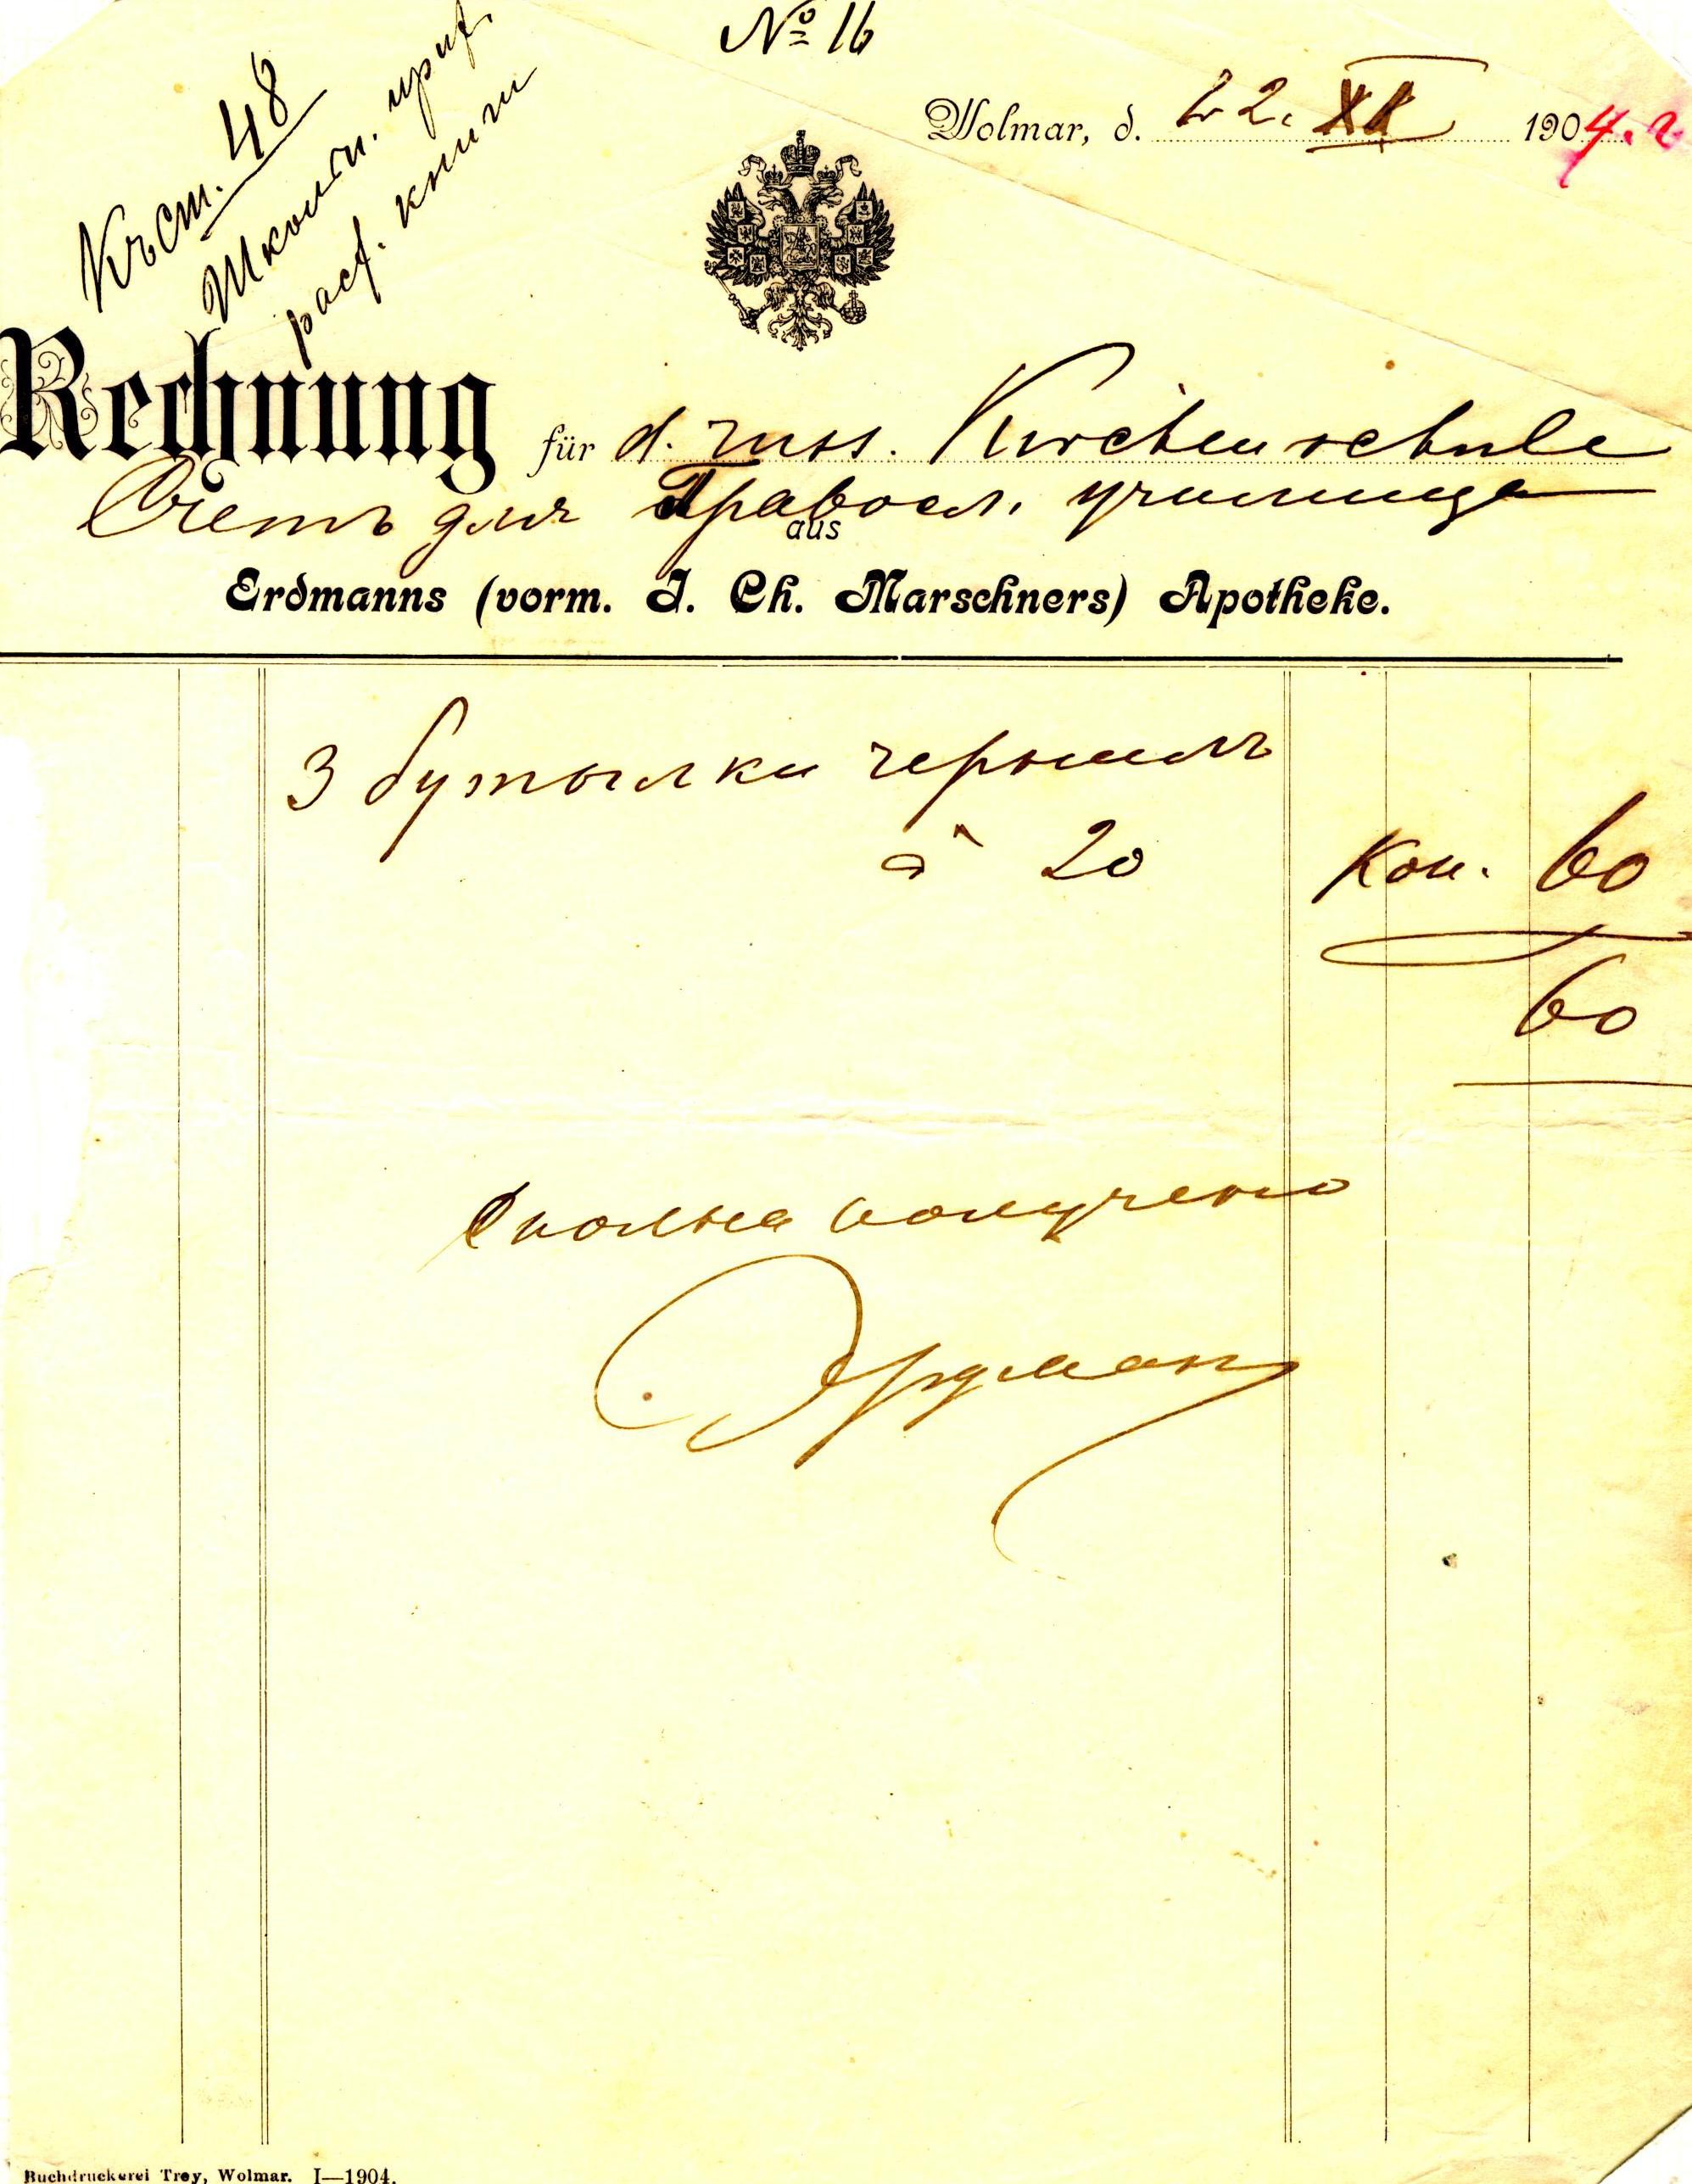 № 16
Къ ст. 48
Школьн. прих.
расх. книги
Wolmar, d. 22. XII 1904. г
Rechnung für d. russ. Kirchenschule
Счетъ для Правосл. училища
aus
Erdmanns (vorm. J. Ch. Marschners) Apotheke.
3 бутылки чернилъ
à 20 Коп. 60
60
Сполна получено
Эрдманъ
Buchdruckerei Trey, Wolmar. I—1904.